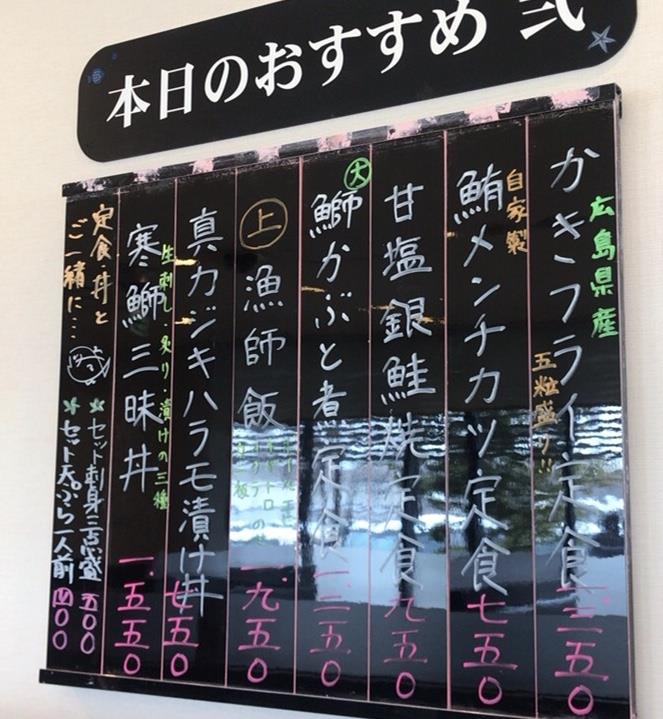 本日のおすすめ 弐
広島県産
かきフライ定食
五粒盛り!!
自家製
鮪メンチカツ定食 七五0
甘塩銀鮭焼定食 九五0
大
鰤かぶと煮定食
上 漁師飯 一.九五0
真カジキハラモ漬け丼 七五0
寒鰤三昧丼 一.五五0
生刺し・炙り・漬けの三種
定食・丼と
ご一緒に…
セット刺身三点盛 五00
セット天ぷら一人前 四00